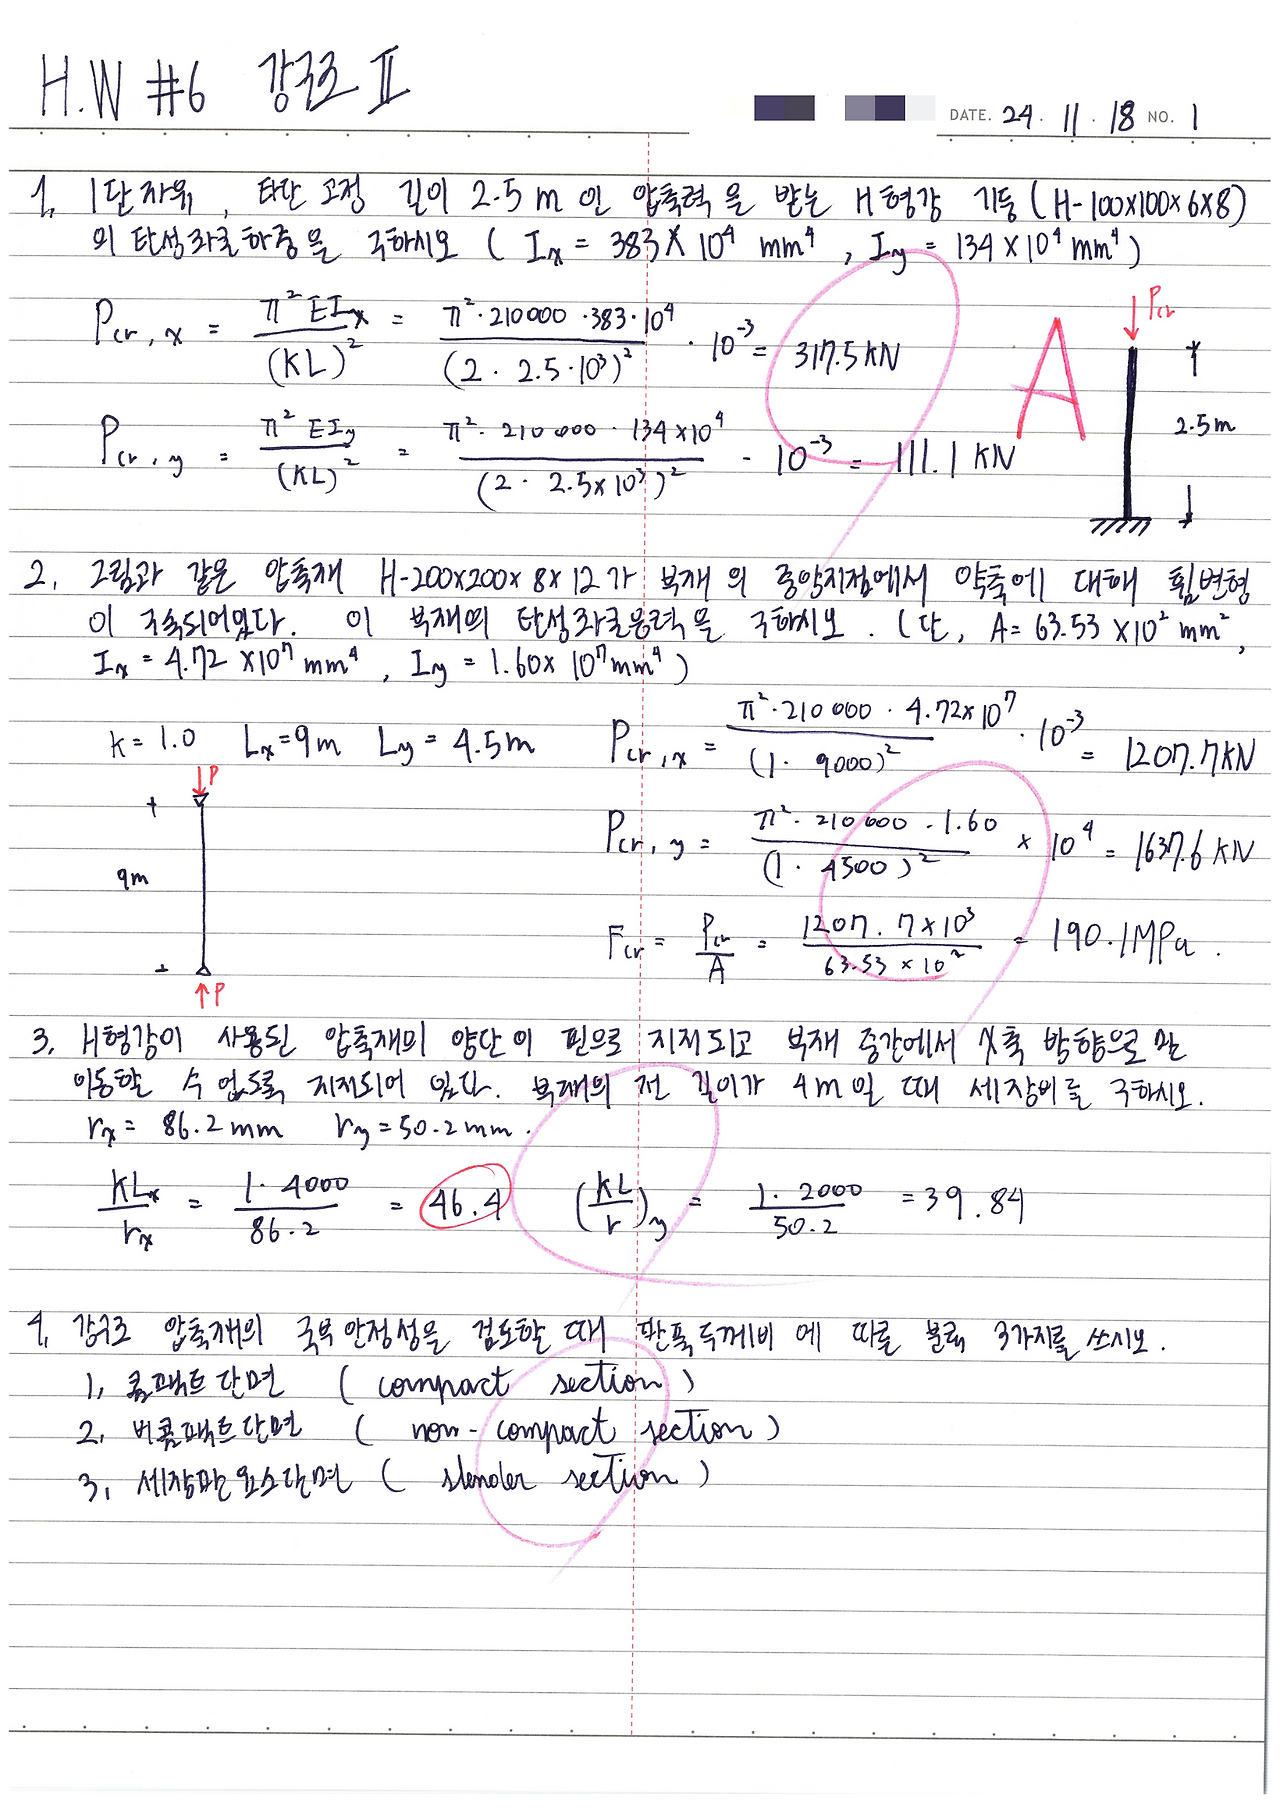 H.W #6 강구조 II
DATE. 24 . 11 . 18 NO. 1
1. 1단자유, 타단 고정 길이 2.5m 인 압축력을 받는 H형강 기둥 (H-100x100x6x8)
의 탄성좌굴하중을 구하시오 ( Ix = 383 x 10⁴ mm⁴ , Iy = 134 x 10⁴ mm⁴ )
Pcr,x = π² EIx / (KL)² = π²·210000·383·10⁴ / (2·2.5·10³)² · 10⁻³ = 317.5 KN
Pcr,y = π² EIy / (KL)² = π²·210000·134x10⁴ / (2·2.5x10³)² - 10⁻³ = 111.1 KN
A
Pcr
2.5m
2. 그림과 같은 압축재 H-200x200x8x12가 부재의 중앙지점에서 약축에 대해 휨변형
이 구속되어있다. 이 부재의 탄성좌굴응력을 구하시오. (단, A= 63.53 x10² mm²,
Ix = 4.72 x10⁷ mm⁴ , Iy = 1.60x 10⁷mm⁴)
k = 1.0 Lx=9m Ly = 4.5m
P
9m
P
Pcr,x = π²·210000·4.72x10⁷ / (1·9000)² · 10⁻³ = 1207.7KN
Pcr,y = π²·210000·1.60 / (1·4500)² x 10⁴ = 1637.6 KN
Fcr = Pcr / A = 1207.7x10³ / 63.53 x 10² = 190.1MPa.
3. H형강이 사용된 압축재의 양단이 핀으로 지지되고 부재 중간에서 X축 방향으로만
이동할 수 없도록 지지되어 있다. 부재의 전 길이가 4m일 때 세장비를 구하시오.
rx = 86.2mm ry = 50.2mm.
KLx / rx = 1·4000 / 86.2 = 46.4 (KL / r)y = 1·2000 / 50.2 = 39.84
4. 강구조 압축재의 국부안정성을 검토할 때 판폭두께비에 따른 분류 3가지를 쓰시오.
1. 콤팩트단면 ( compact section )
2. 비콤팩트단면 ( non-compact section )
3. 세장판요소단면 ( slender section )